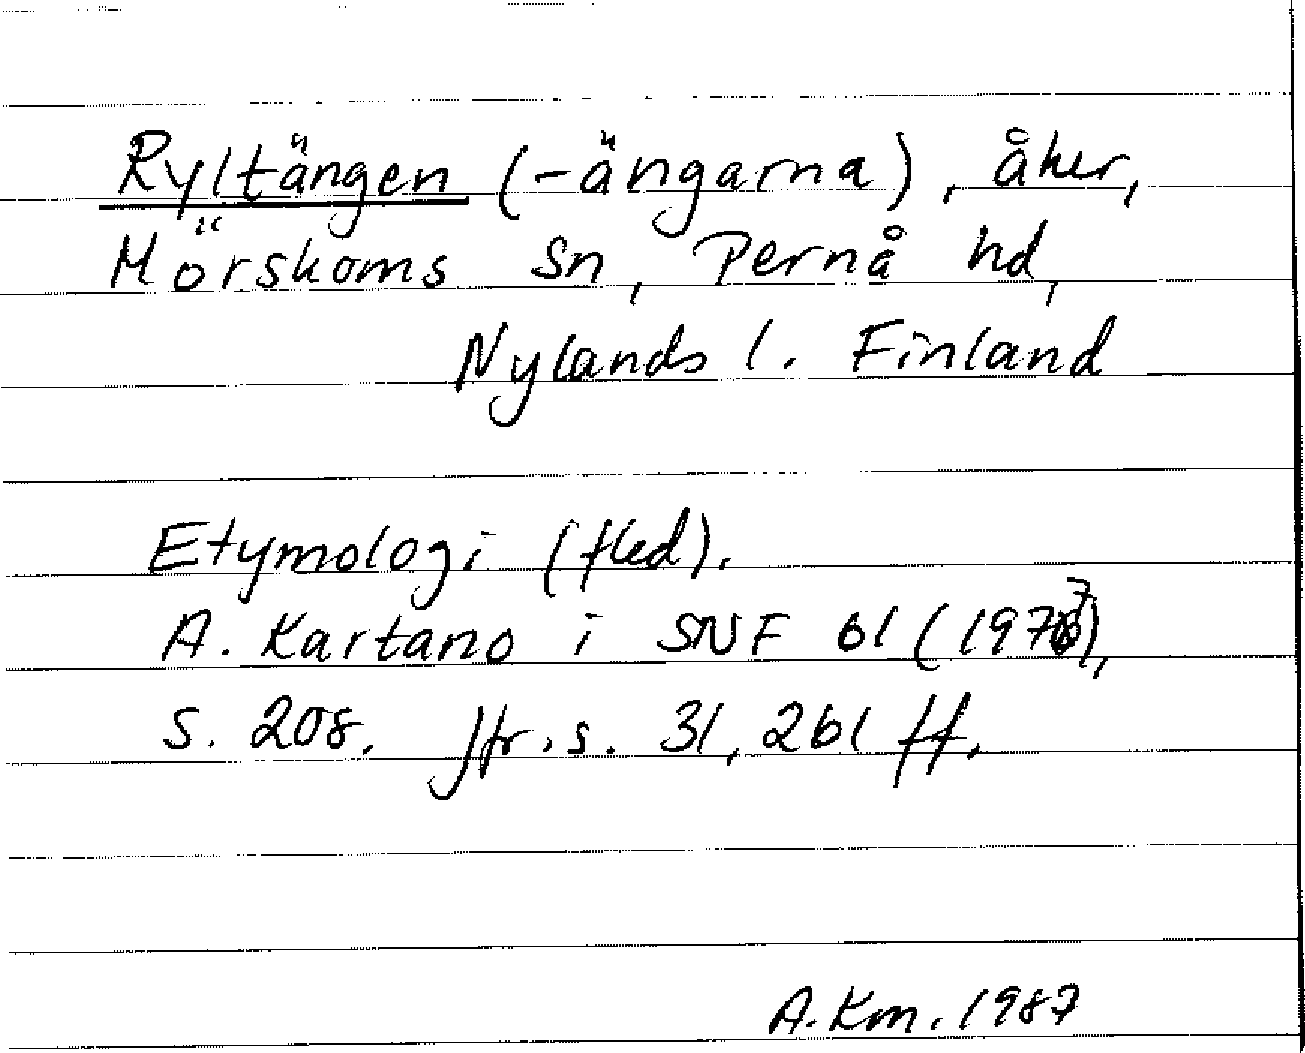 Ryltängen (-ängarna), åker,
Mörskoms sn, Pernå hd,
Nylands l. Finland
Etymologi (fled).
A. Kartano i SNF 61 (1977),
s. 208. Jfr. s. 31, 261 ff.
A. Km. 1987